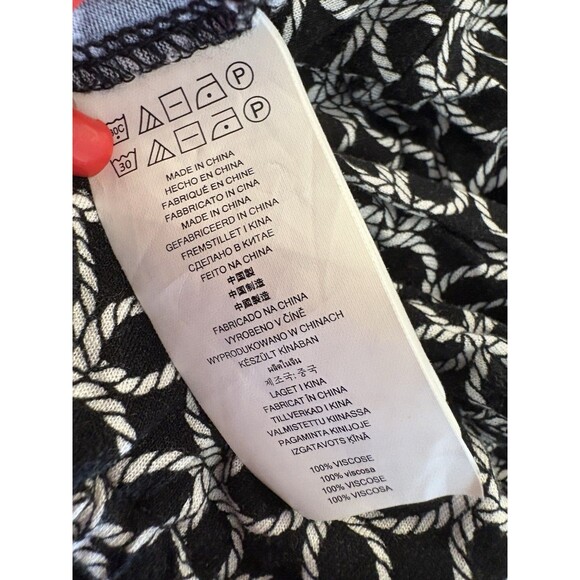 30C P
30 P
MADE IN CHINA
HECHO EN CHINA
FABRIQUÉ EN CHINE
FABBRICATO IN CINA
MADE IN CHINA
GEFABRICEERD IN CHINA
FREMSTILLET I KINA
СДЕЛАНО В КИТАЕ
FEITO NA CHINA
中国製
中国制造
中國製造
FABRICADO NA CHINA
VYROBENO V ČÍNĚ
WYPRODUKOWANO W CHINACH
KÉSZÜLT KÍNÁBAN
ผลิตในจีน
제조국:중국
LAGET I KINA
FABRICAT ÎN CHINA
TILLVERKAD I KINA
VALMISTETTU KIINASSA
PAGAMINTA KINIJOJE
IZGATAVOTS ĶĪNĀ
100% VISCOSE
100% viscosa
100% VISCOSE
100% VISCOSA